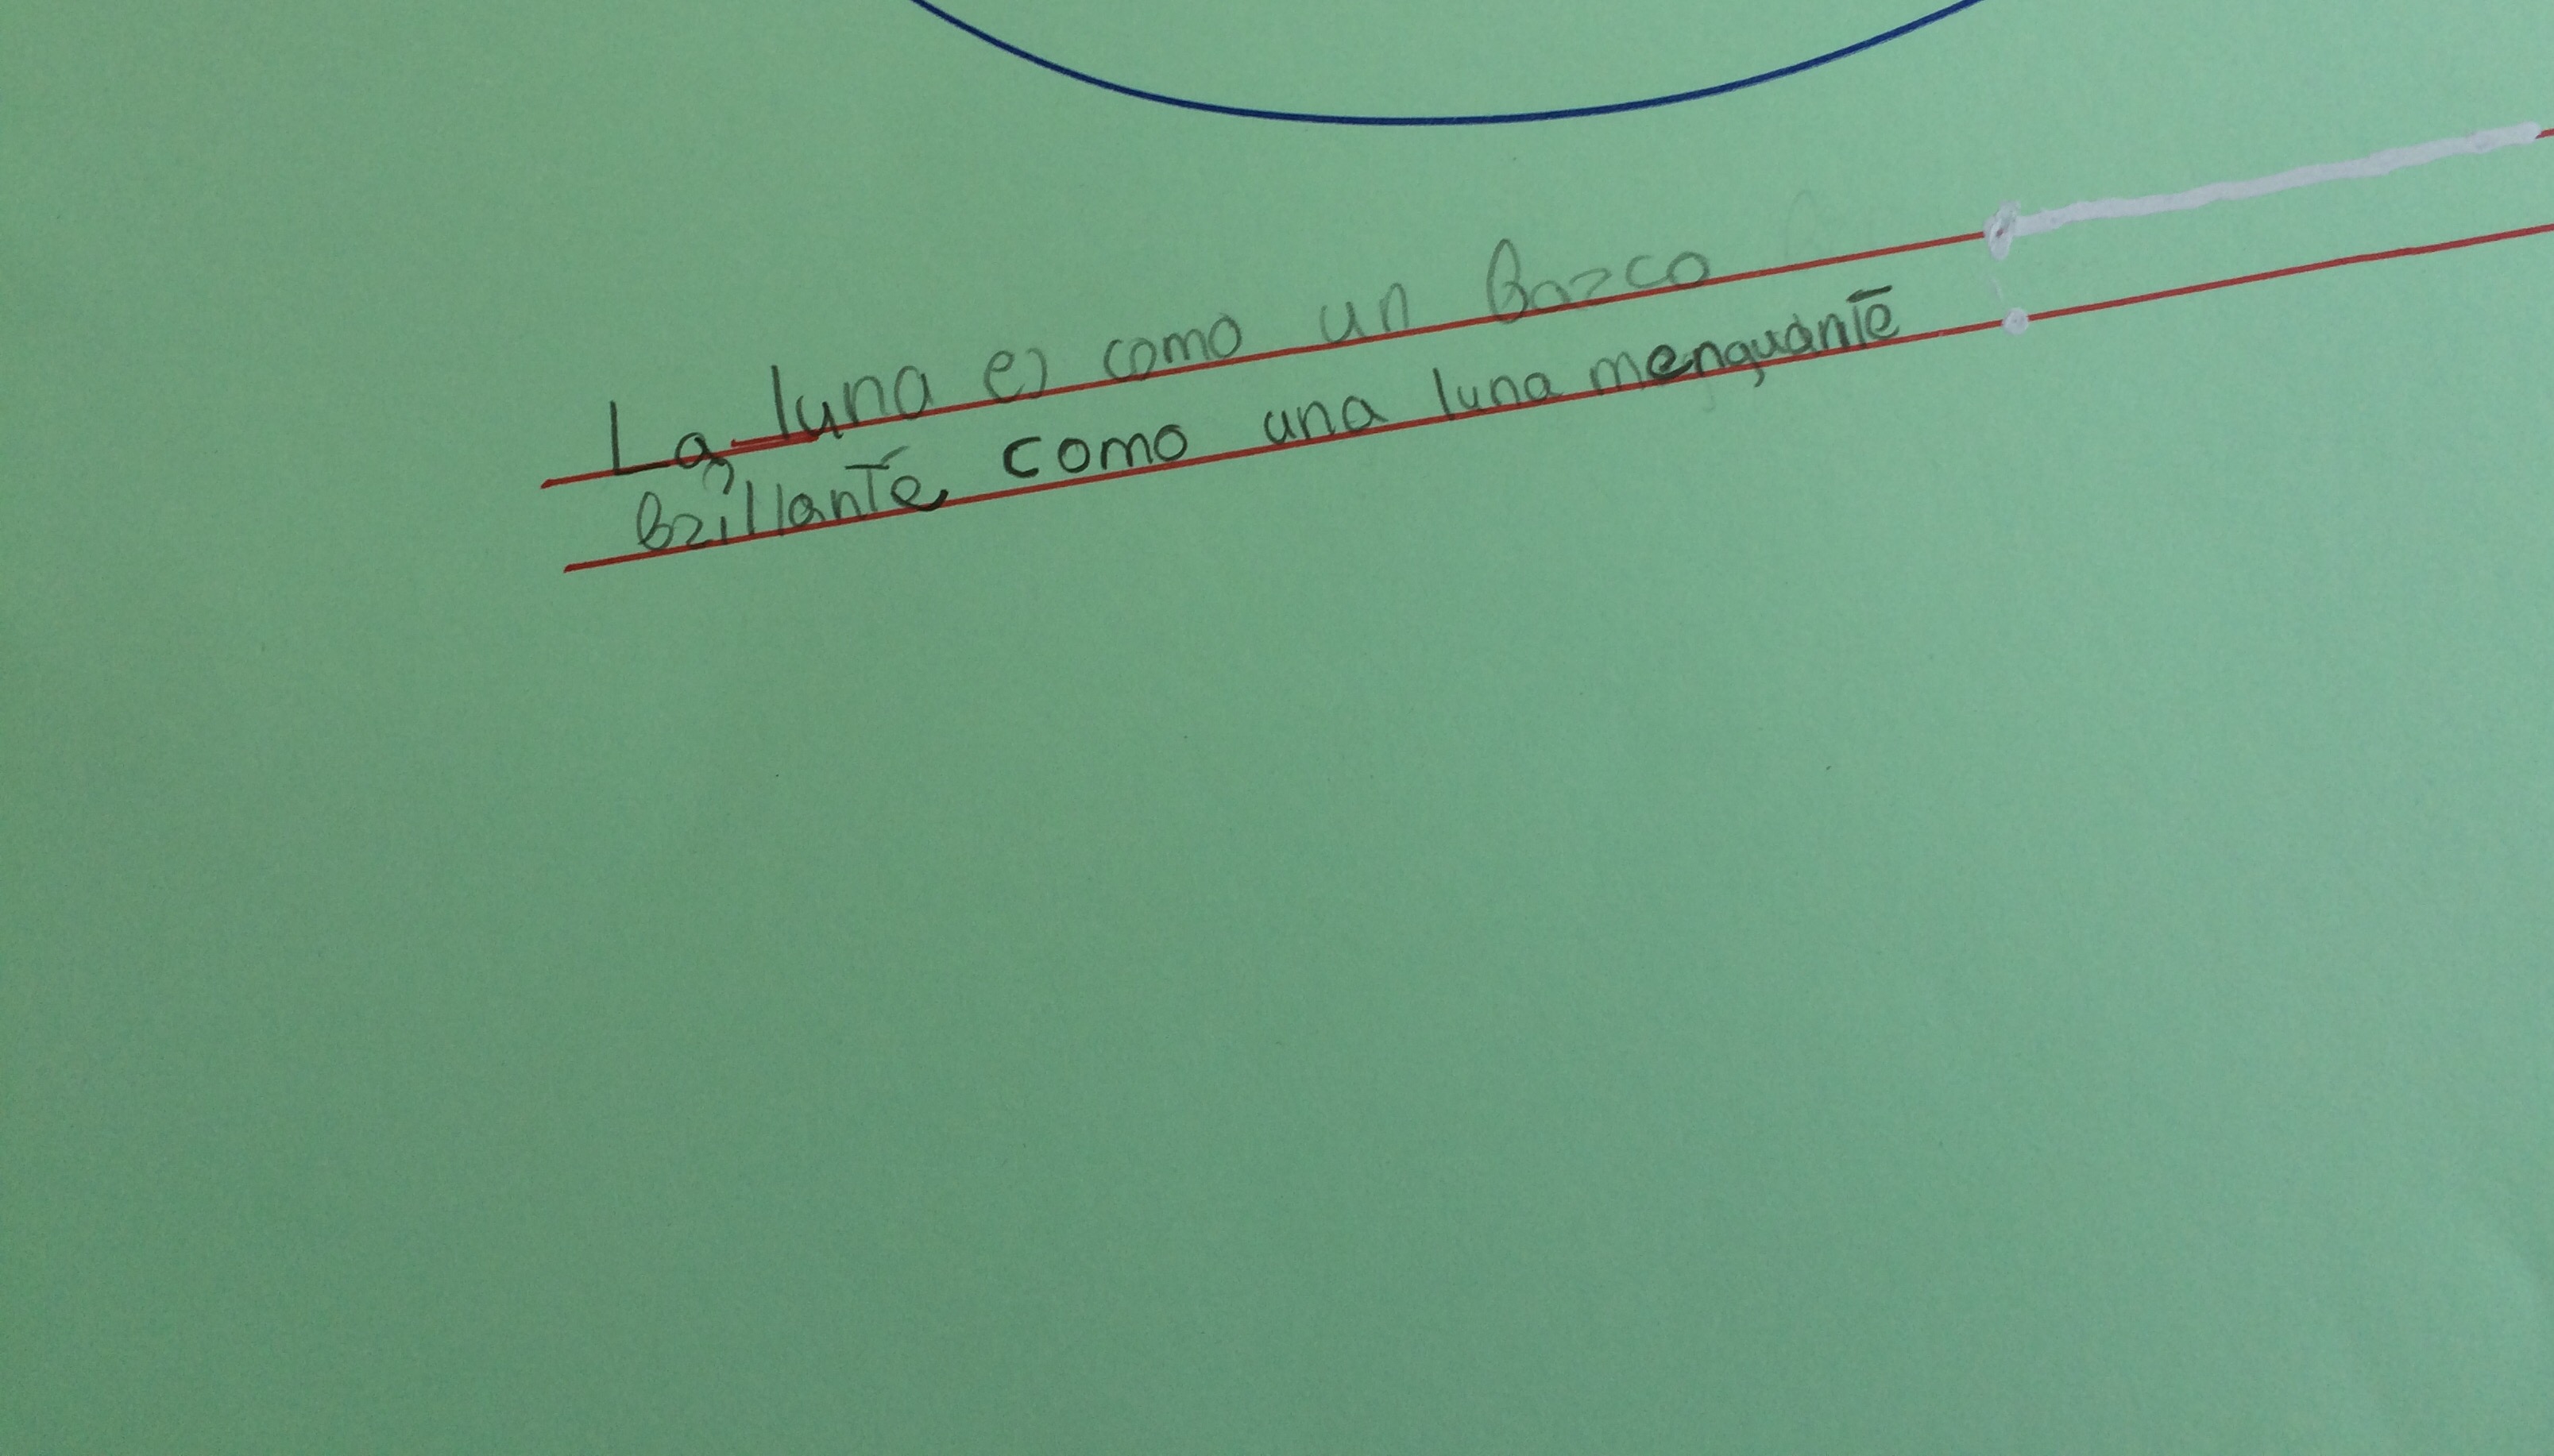 La luna es como un barco
brillante como una luna menguante